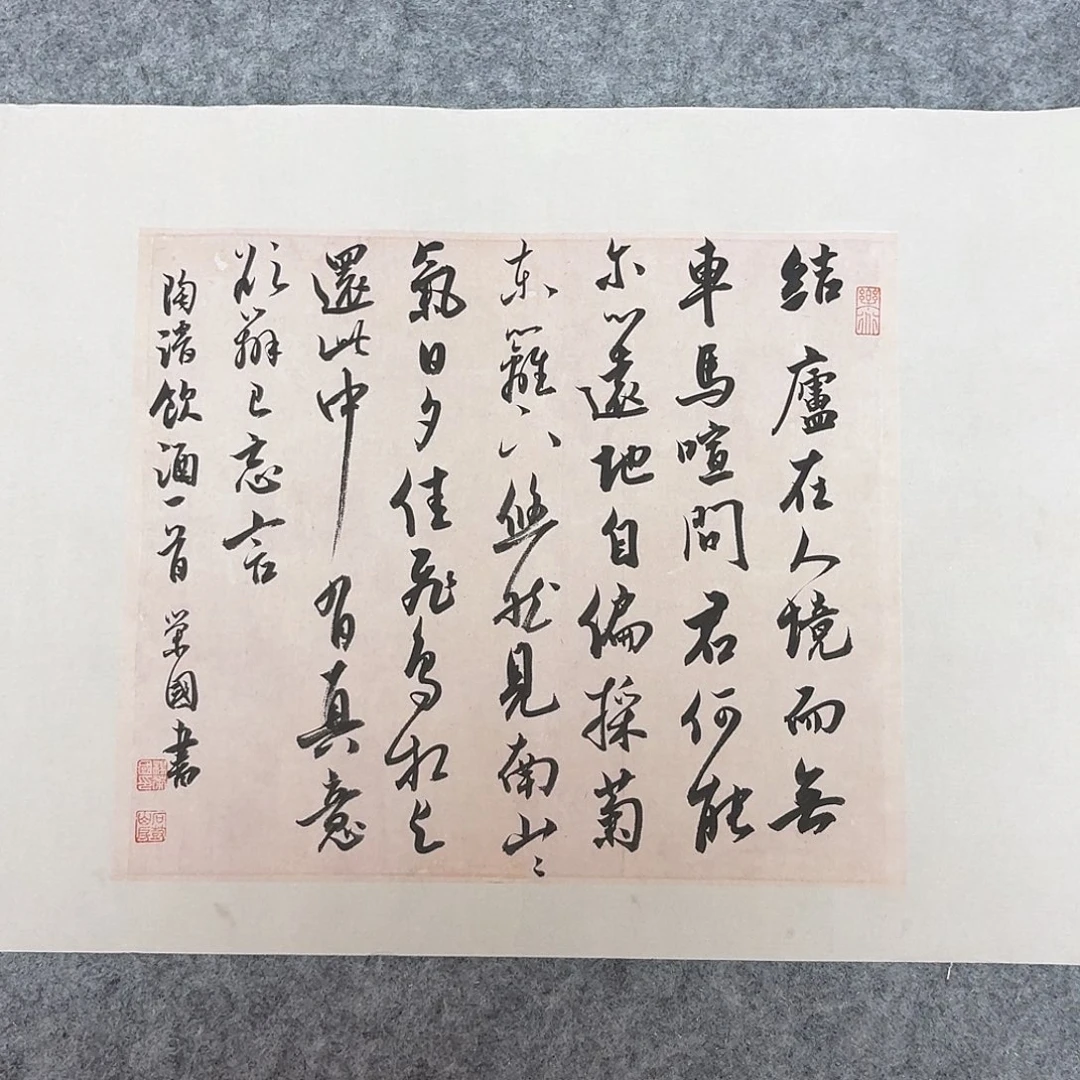 結廬在人境而無
車馬喧問君何能
尔心遠地自偏採菊
东籬下悠然見南山〻
氣日夕佳飛鳥相与
還此中有真意
欲辯已忘言
陶潜飲酒一首 荣國書